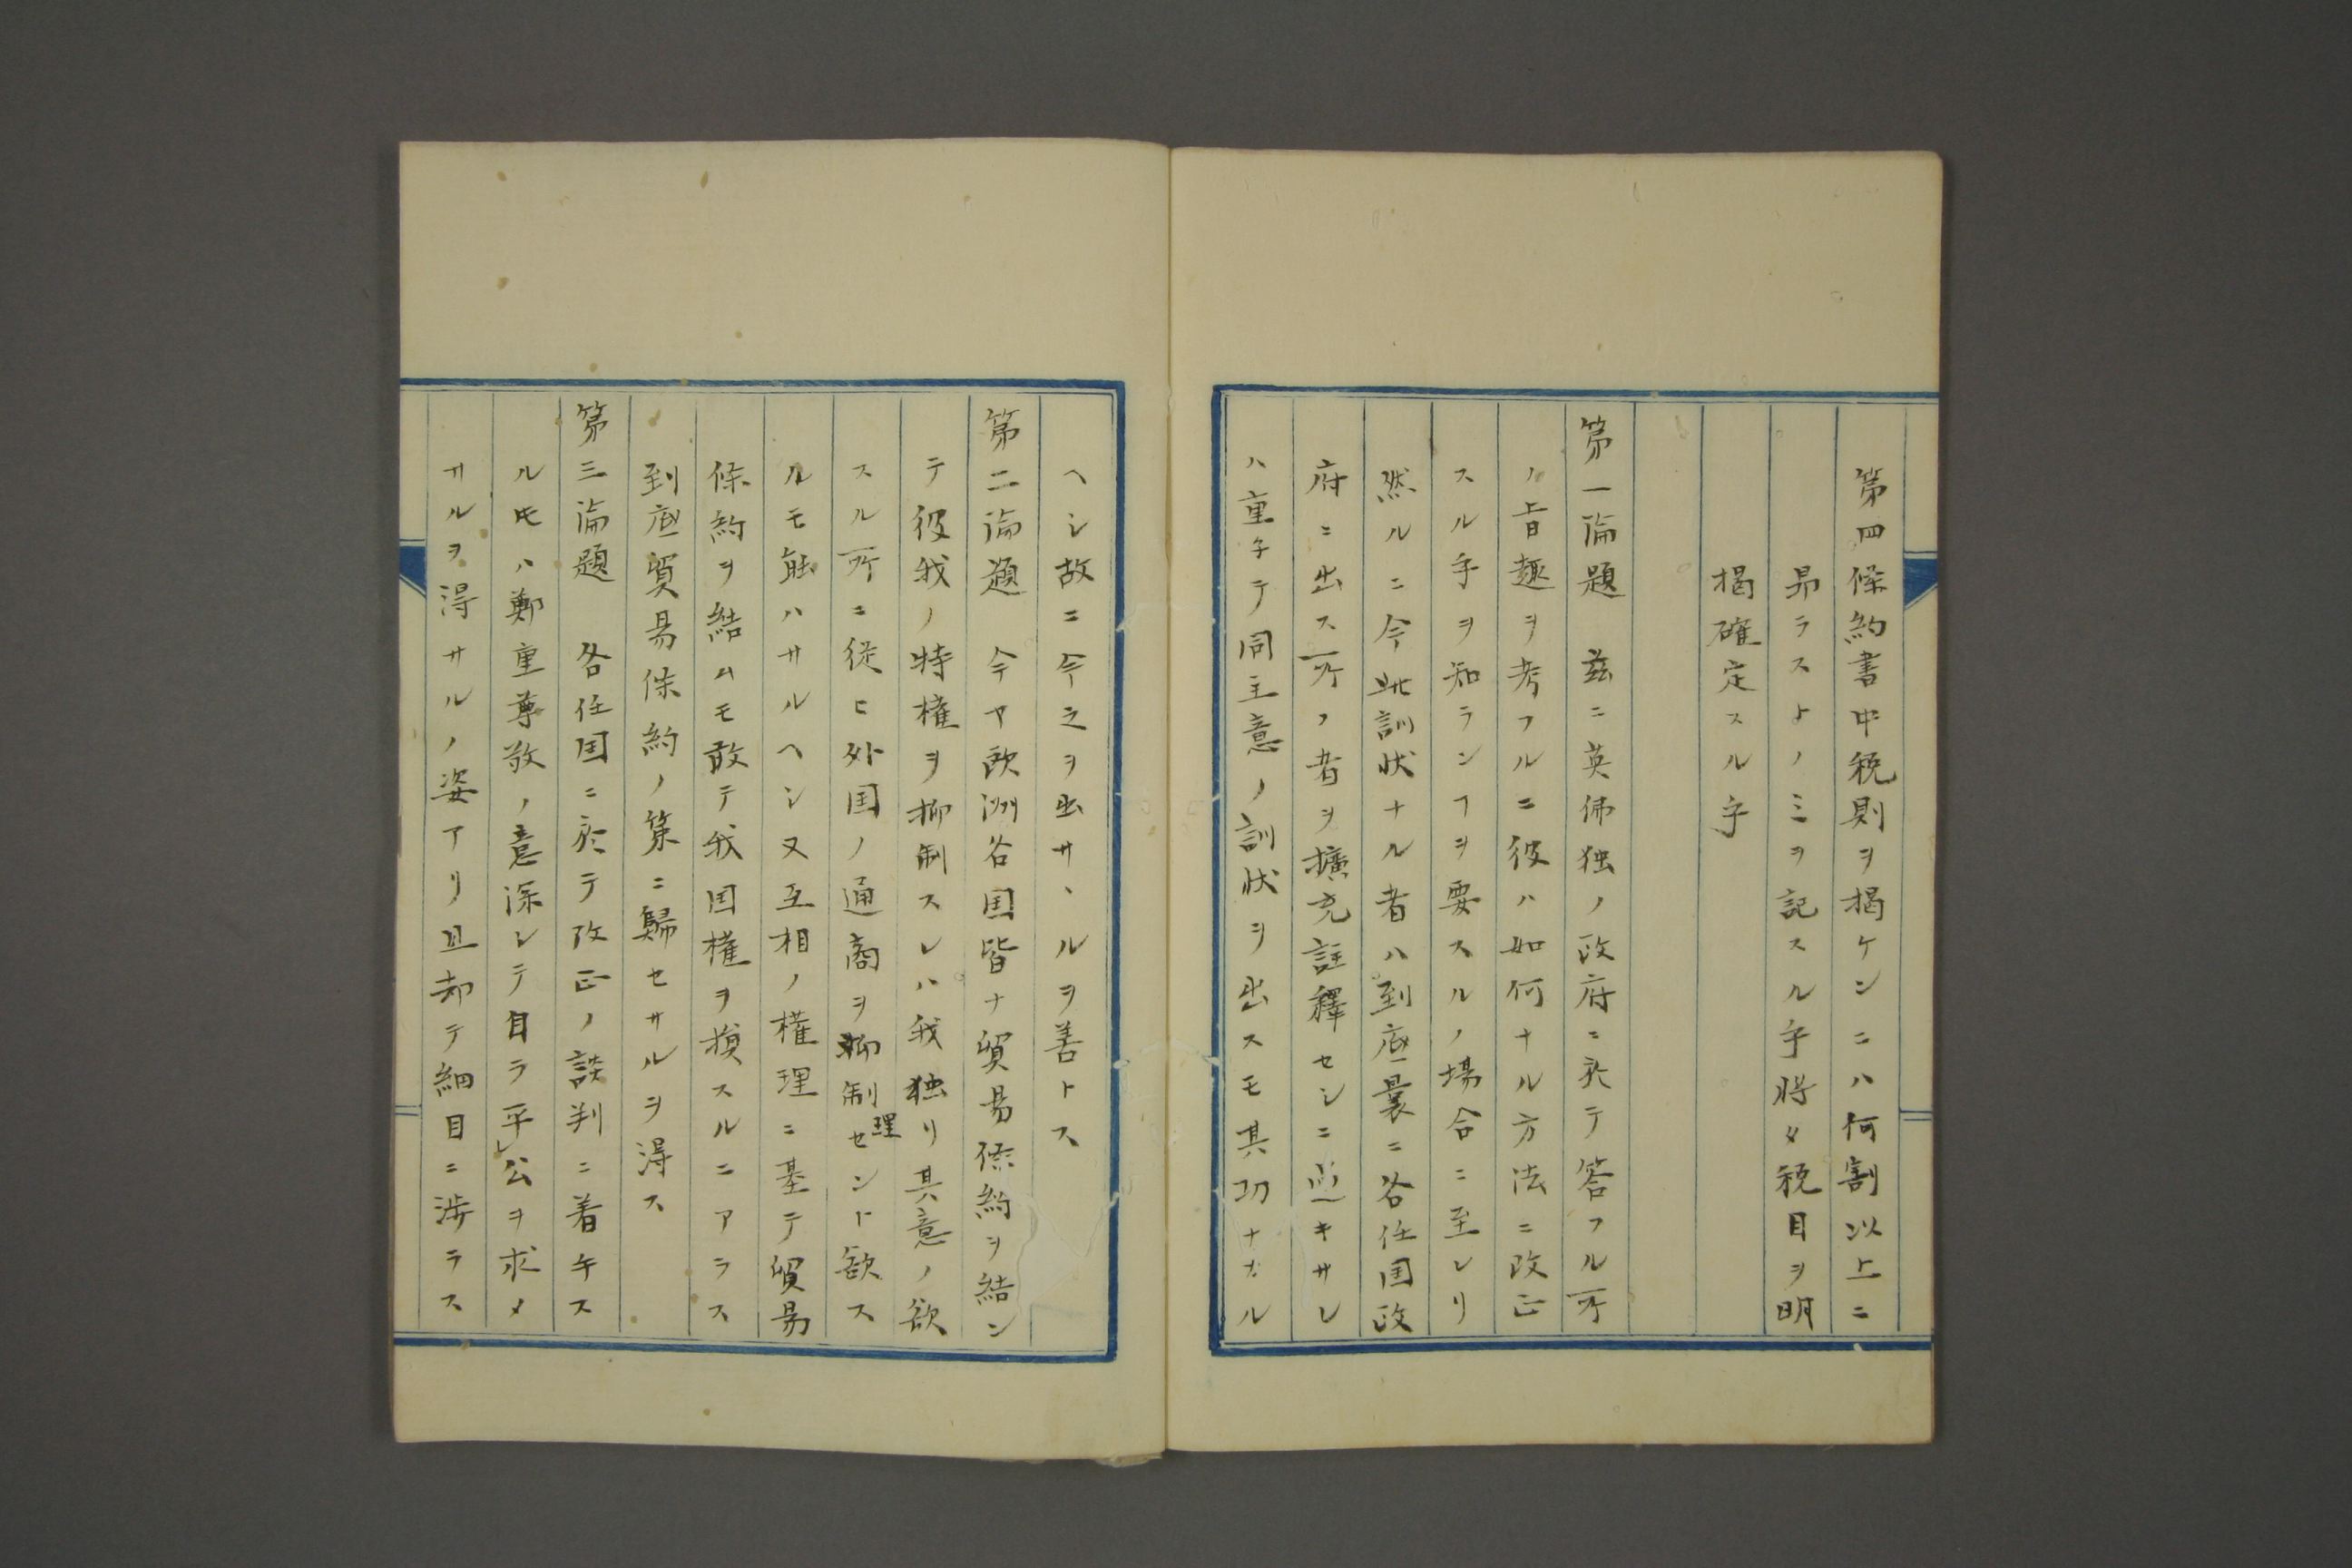 第四條約書中税則ヲ掲ケンニハ何割以上ニ
昂ラスヨノミヲ記スル乎将タ税目ヲ明
掲確定スル乎
第一論題 茲ニ英佛独ノ政府ニ於テ答フル所
ノ旨趣ヲ考フルニ彼ハ如何ナル方法ニ改正
スル乎ヲ知ランヿヲ要スルノ場合ニ至レリ
然ルニ今此訓状ナル者ハ到底曩ニ各任国政
府ニ出ス所ノ者ヲ擴充註釋セシニ過キサレ
ハ重子テ同主意ノ訓状ヲ出スモ其功ナカル
ヘシ故ニ今之ヲ出サヽルヲ善トス
第二論題 今ヤ欧洲各国皆ナ貿易條約ヲ結ン
テ彼我ノ特権ヲ抑制スレハ我独リ其意ノ欲
スル所ニ従ヒ外国ノ通商ヲ抑制理センド欲ス
ルモ能ハサルヘシ又互相ノ權理ニ基テ貿易
條約ヲ結ムモ敢テ我国權ヲ損スルニアラス
到底貿易條約ノ策ニ歸セサルヲ得ス
第三論題 各任国ニ於テ改正ノ談判ニ着手ス
ル時ハ鄭重尊敬ノ意深シテ自ラ平公ヲ求メ
サルヲ得サルノ姿アリ且却テ細目ニ渉ラス